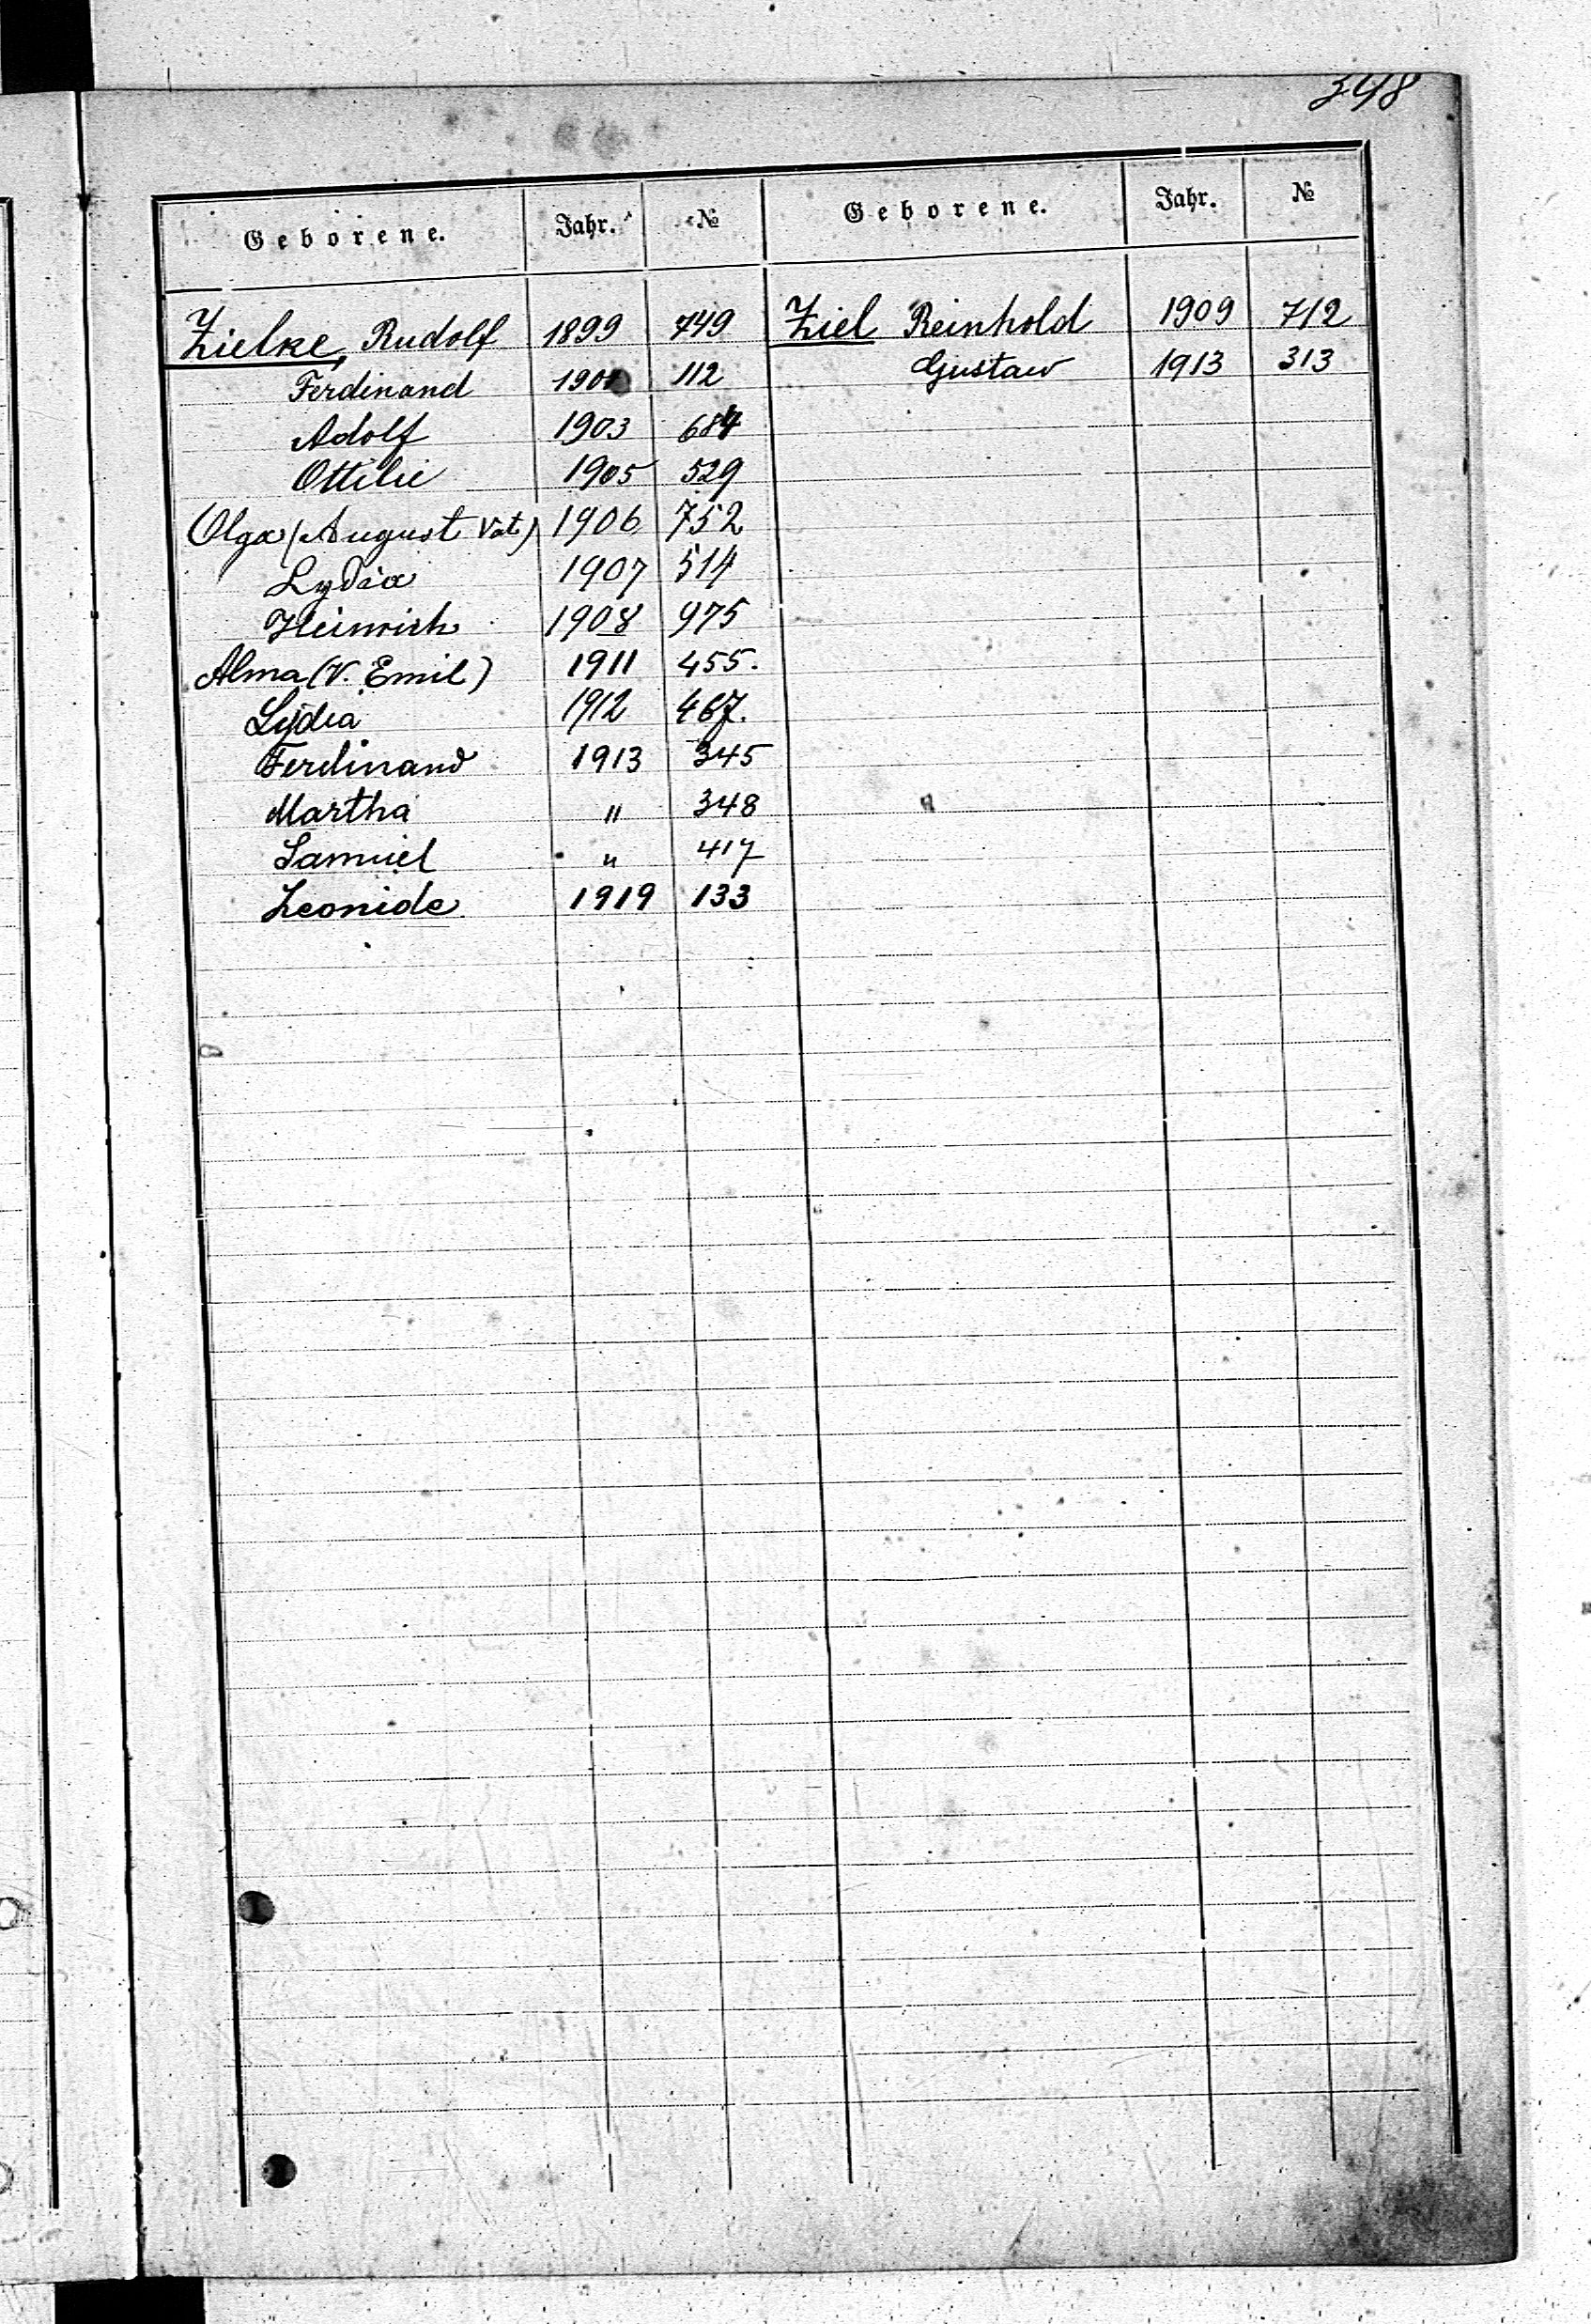 348
Geborene. Jahr. № Geborene. Jahr. №
Zielke, Rudolf 1899 749 Ziel Reinhold 1909 712
Ferdinand 1901 112 Gustaw 1913 313
Adolf 1903 684
Ottilie 1905 529
Olga (August Vat.) 1906 752
Lydia 1907 514
Heinrich 1908 975
Alma (V. Emil) 1911 455.
Lydia 1912 467.
Ferdinand 1913 345
Martha " 348
Samuel " 417
Leonide 1919 133